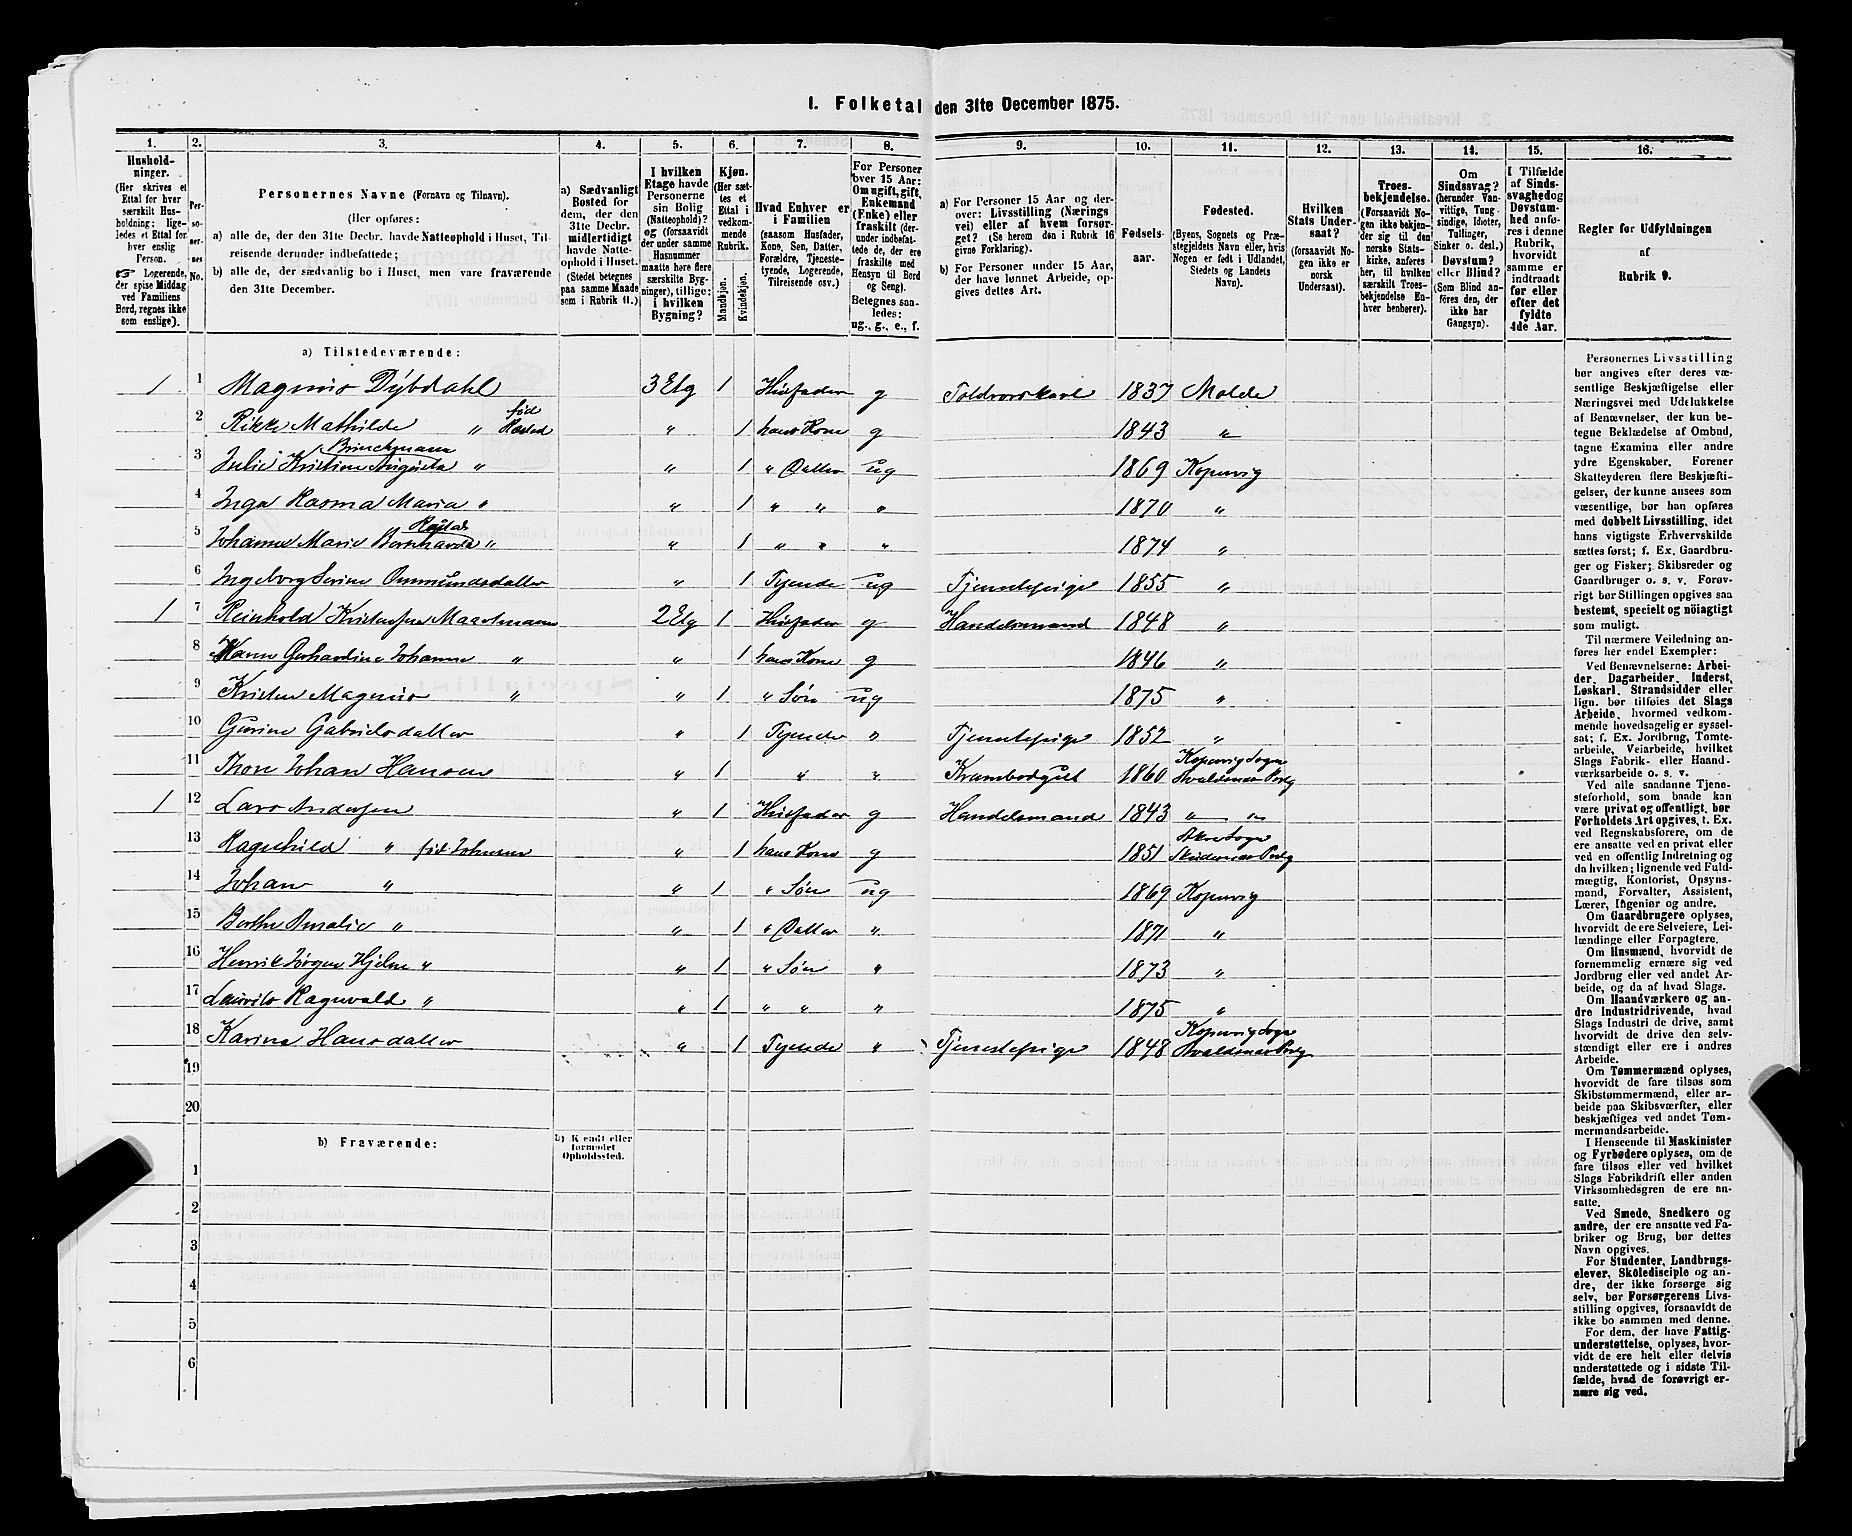 1. Folketal den 31te December 1875.
1. 2. 3. 4. 5. 6. 7. 8. 9. 10. 11. 12. 13. 14. 15. 16.
Husholdninger.
(Her skrives et
Ettal for hver
særskilt Husholdning;
ligeledes et Ettal for
hver enslig
Person.
☞ Logerende,
der spise Middag
ved Familiens
Bord, regnes ikke
som enslige).
Personernes No.
Personernes Navne (Fornavn og Tilnavn).
(Her opføres:
a) alle de, der den 31te Decbr. havde Natteophold i Huset, Tilreisende derunder indbefattede;
b) alle de, der sædvanlig bo i Huset, men vare fraværende
den 31te December.
a) Sædvanligt
Bosted for
dem, der den
31te Decbr.
midlertidigt
havde Natteophold i Huset.
(Stedet betegnes
paa samme Maade
som i Rubrik 11.)
I hvilken
Etage havde
Personerne
sin Bolig
(Natteophold)?
og (forsaavidt
der under samme
Husnummer
maatte høre flere
særskilte Bygninger), tillige:
i hvilken
Bygning?
Kjøn.
(Her sættes et
Ettal i
vedkommende
Rubrik.
Mandkjøn.
Kvindekjøn.
Hvad Enhver er
i Familien
(saasom Husfader,
Kone, Søn, Datter,
Forældre, Tjenestetyende, Logerende,
Tilreisende osv.)
For Personer
over 15 Aar:
Om ugift, gift,
Enkemand
(Enke) eller
fraskilt (derunder indbefattede de, der ere
fraskilte med
Hensyn til Bord
og Seng).
Betegnes saaledes:
ug., g., e., f.
a) For Personer 15 Aar og derover: Livsstilling (Næringsvei) eller af hvem forsørget? (Se herom den i Rubrik 16
givne Forklaring).
b) For Personer under 15 Aar,
der have lønnet Arbeide, opgives dettes Art.
Fødselsaar.
Fødested.
(Byens, Sognets og Præstegjeldets Navn eller, hvis
Nogen er født i Udlandet,
Stedets og Landets
Navn).
Hvilken
Stats Undersaat?
(forsaavidt Nogen ikke er
norsk
Undersaat).
Troesbekjendelse.
(Forsaavidt Nogen ikke bekjender sig til den
norske Statskirke, anføres
her, til hvilken
særskilt Troesbekjendelse Enhver henhører).
Om
Sindssvag?
(herunder Vanvittige, Tungsindige, Idioter,
Tullinger,
Sinker o. desl.)
Døvstum?
eller Blind?
(Som Blind anføres den, der
ikke har
Gangsyn).
I Tilfælde
af Sindssvaghed og
Døvstumhed anføres i denne
Rubrik,
hvorvidt
samme er
indtraadt
før eller
efter det
fyldte
4de Aar.
Regler for Udfyldningen
af
Rubrik 9.
a) Tilstedeværende:
1 1 Magnus Dybdahl 3 Etg 1 Husfader g Toldvorskarl 1837 Molde
2 Rikke Mathilde " fød " 1 hans Kone g 1843 "
3 Julie Kristine Augusta Brinchmann " " 1 " Datter ug 1869 Kopervig
4 Inga Rasma Maria " " 1 " " " 1870 "
5 Johanne Marie " " 1 " " " 1874 "
6 Ingeborg Serine Ommundsdatter " 1 Tyende ug Tjenestepige 1855 "
1 7 Reinhold Kristensen 2 Etg 1 Husfader g Handelsmand 1848 "
8 Gerhardine Johanne " " 1 hans Kone g 1846 "
9 Kristen Magnus " " 1 " Søn ug 1875 "
10 Gurine Gabrielsdatter " 1 Tyende " Tjenestepige 1852 "
11 Thore Johan Hansen " 1 " " Krambodgut 1860 Kopervig Sogn Avaldsnes Prstg
1 12 Lars Andersen " 1 Husfader g Handelsmand 1843 " "
13 Ragnhild " fød Johnsen " 1 hans Kone g 1851 Akre Sogn Skudesnæs Prstg
14 Johan " " 1 " Søn ug 1869 Kopervig
15 Berthe Amalie " " 1 " Datter " 1871 "
16 Henrik Jørgen Hjelm " " 1 " Søn " 1873 "
17 Laurits Ragnvald " " 1 " " " 1875 "
18 Karina Hansdatter " 1 Tyende " Tjenestepige 1848 Kopervig Sogn Avaldsnes Prstg
19
20
b) Fraværende:
b) Kjendt eller
formodet
Opholdssted.
1
2
3
4
5
6
Personernes Livsstilling
bør angives efter deres væsentlige Beskjæftigelse eller
Næringsvei med Udelukkelse
af Benævnelser, der kun betegne Beklædelse af Ombud,
tagne Examina eller andre
ydre Egenskaber. Forener
Skatteyderen flere Beskjæftigelser, der kunne ansees som
væsentlige, bør han opføres
med dobbelt Livsstilling, idet
hans vigtigste Erhvervskilde
sættes først; f. Ex. Gaardbruger og Fisker; Skibsreder og
Gaardbruger o. s. v. Forøvrigt bør Stillingen opgives saa
bestemt, specielt og nøiagtigt
som muligt.
Til nærmere Veiledning anføres her endel Exempler:
Ved Benævnelserne: Arbeider, Dagarbeider, Inderst,
Løskarl, Strandsidder eller
lign. bør tilføies det Slags
Arbeide, hvormed vedkommende hovedsagelig er sysselsat; f. Ex. Jordbrug, Tomtearbeide, Veiarbeide, hvilket
Slags Fabrik- eller Haandværksarbeide o. s. v.
Ved alle saadanne Tjenesteforhold, som baade kan
være privat og offentligt, bør
Forholdets Art opgives, t. Ex.
ved Regnskabsførere, om de
ere ansatte ved en privat eller
ved en offentlig Indretning og
da hvilken; lignende ved Fuldmægtig, Kontorist, Opsynsmand, Forvalter, Assistent,
Lærer, Ingeniør og andre.
Om Gaardbrugere oplyses,
hvorvidt de ere Selveiere, Leilændinge eller Forpagtere.
Om Husmænd, hvorvidt de
fornemmelig ernære sig ved
Jordbrug eller ved andet Arbeide, og da af hvad Slags.
Om Haandværkere og andre Industridrivende, hvad
Slags Industri de drive, samt
hvorvidt de drive den selvstændigt eller ere i andres
Arbeide.
Om Tømmermænd oplyses,
hvorvidt de fare tilsøs som
Skibstømmermænd, eller arbeide paa Skibsværfter, eller
beskjæftiges ved andet Tømmermandsarbeide.
I Henseende til Maskinister
og Fyrbødere oplyses, om de
fare tilsøs eller ved hvilket
Slags Fabrikdrift eller anden
Virksomhedsgren de ere ansatte.
Ved Smede, Snedkere og
andre, der ere ansatte ved Fabriker og Brug, bør dettes
Navn opgives.
For Studenter, Landbrugselever, Skoledisciple og andre, der ikke forsørge sig
selv, bør Forsørgerens Livsstilling opgives, forsaavidt de
ikke bo sammen med denne.
For dem, der have Fattigunderstøttelse, oplyses, hvorvidt de ere helt eller delvis
understøttede og i sidste Tilfælde, hvad de forøvrigt ernære sig ved.